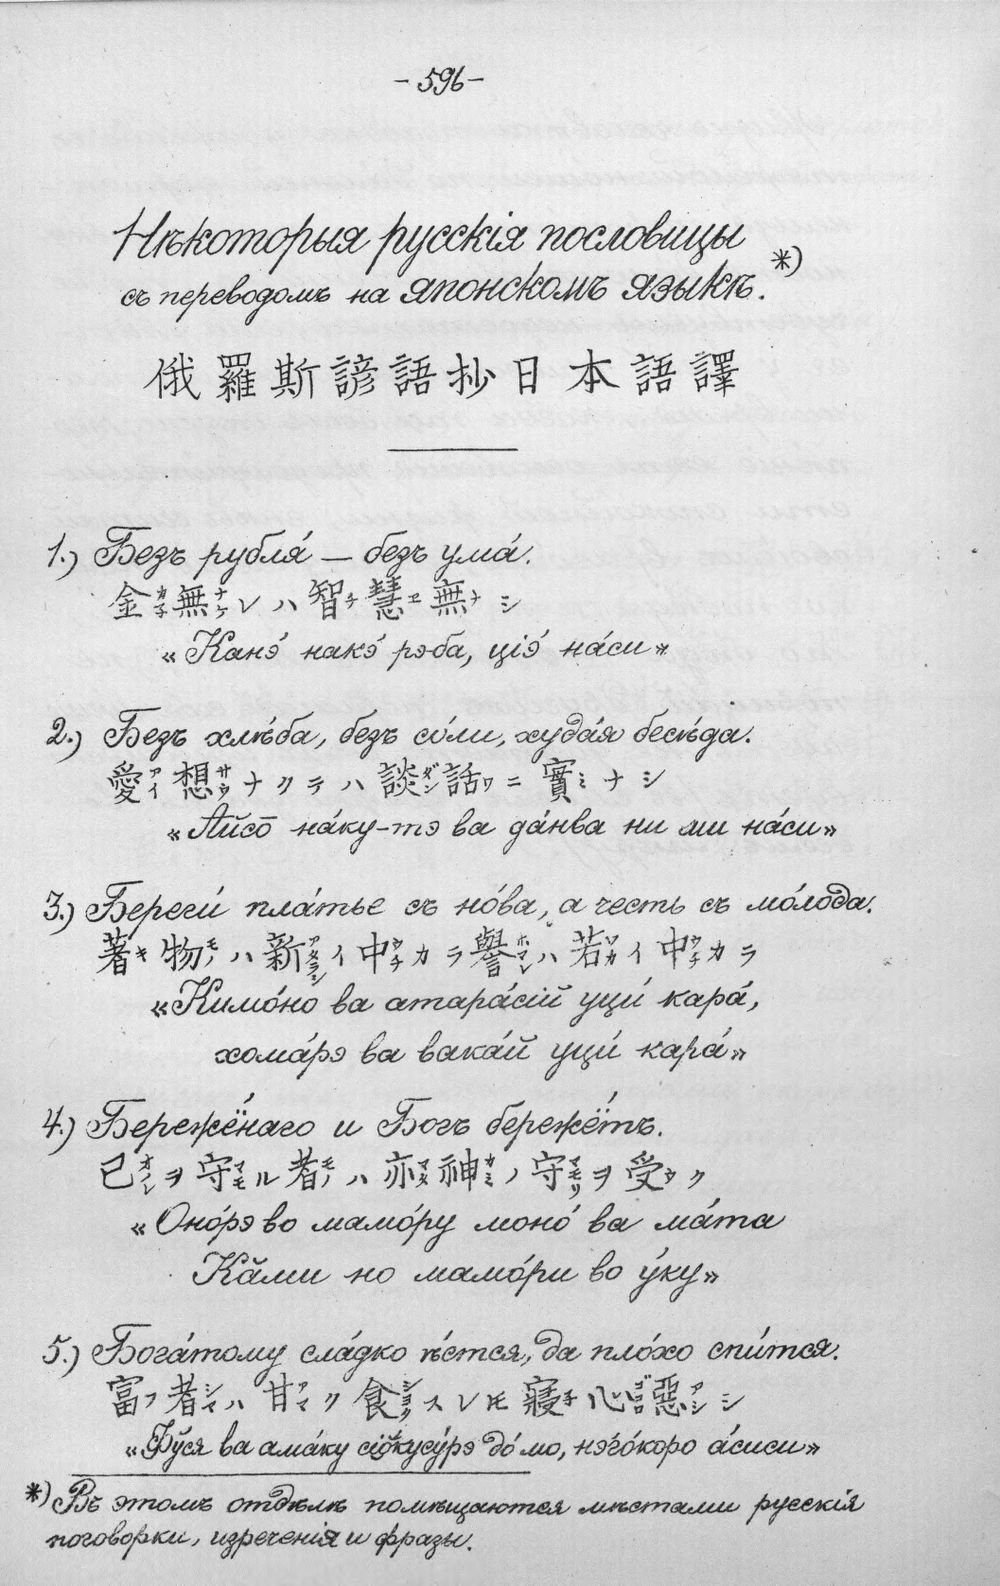 - 596 -
Нѣкоторыя русскія пословицы
съ переводомъ на японскомъ языкѣ. *)
俄羅斯諺語抄日本語譯
1.) Безъ рубля́ — безъ ума́.
金カ子無ナケレハ智チ慧ヱ無ナシ
«Канэ́ накэ́ рэба, ціэ́ на́си»
2.) Безъ хлѣба, безъ со́ли, худа́я бесѣ́да.
愛アイ想サウナクテハ談ダン話ワニ實ミナシ
«Айсо̄ на́ку-тэ ва да́нва ни ми на́си»
3.) Береги́ пла́тье съ но́ва, а честь съ мо́лода.
著キ物モノハ新アタラシイ中ウチカラ譽ホマレハ若ワカイ中ウチカラ
«Кимо́но ва атара́сій уци́ кара́,
хома́рэ ва вака́й уци́ кара́»
4.) Бережё́наго и Богъ бережё́тъ.
己オノレヲ守マモル者モノハ亦マタ神カミノ守マモリヲ受ウク
«Оно́рэ во мамо́ру моно́ ва ма́та
Кӑми но мамо́ри во у́ку»
5.) Бога́тому сла́дко ѣ́стся, да пло́хо спи́тся.
富フ者シヤハ甘アマク食シヨクスレ𪜈寢子心ゴコロ惡アシシ
«Фӯся ва ама́ку сіо̆кусу́рэ до́мо, нэ́го́коро а́сиси»
*) Въ этомъ отдѣлѣ помѣщаются мѣстами русскія
поговорки, изреченія и фразы.